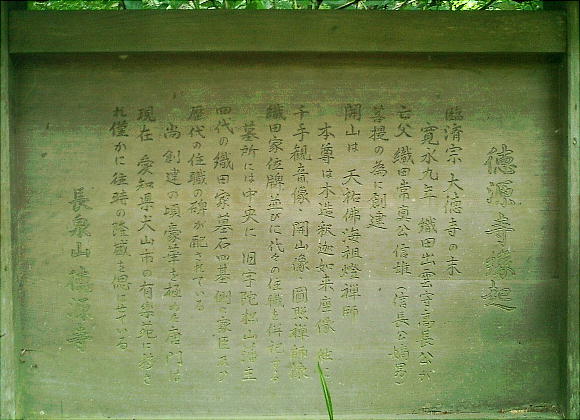 徳源寺縁起
臨済宗 大徳寺の末
寛永九年 織田出雲守高長公が
亡父 織田常真公信雄(信長公嫡男)
菩提の為に創建
開山は 天祐佛海祖燈禅師
本尊は木造釈迦如来座像 他に
千手観音像、開山像、圓照禅師像
織田家位牌並びに代々の住職を併祀する
墓所には中央に 旧宇陀松山藩主
四代の織田家墓石四基 側に家臣及び
歴代の住職の碑が配されている
尚 創建の頃豪華を極めた唐門は
現在 愛知県犬山市の有楽苑に移さ
れ僅かに往時の隆盛を偲ばせている
長泉山 徳源寺